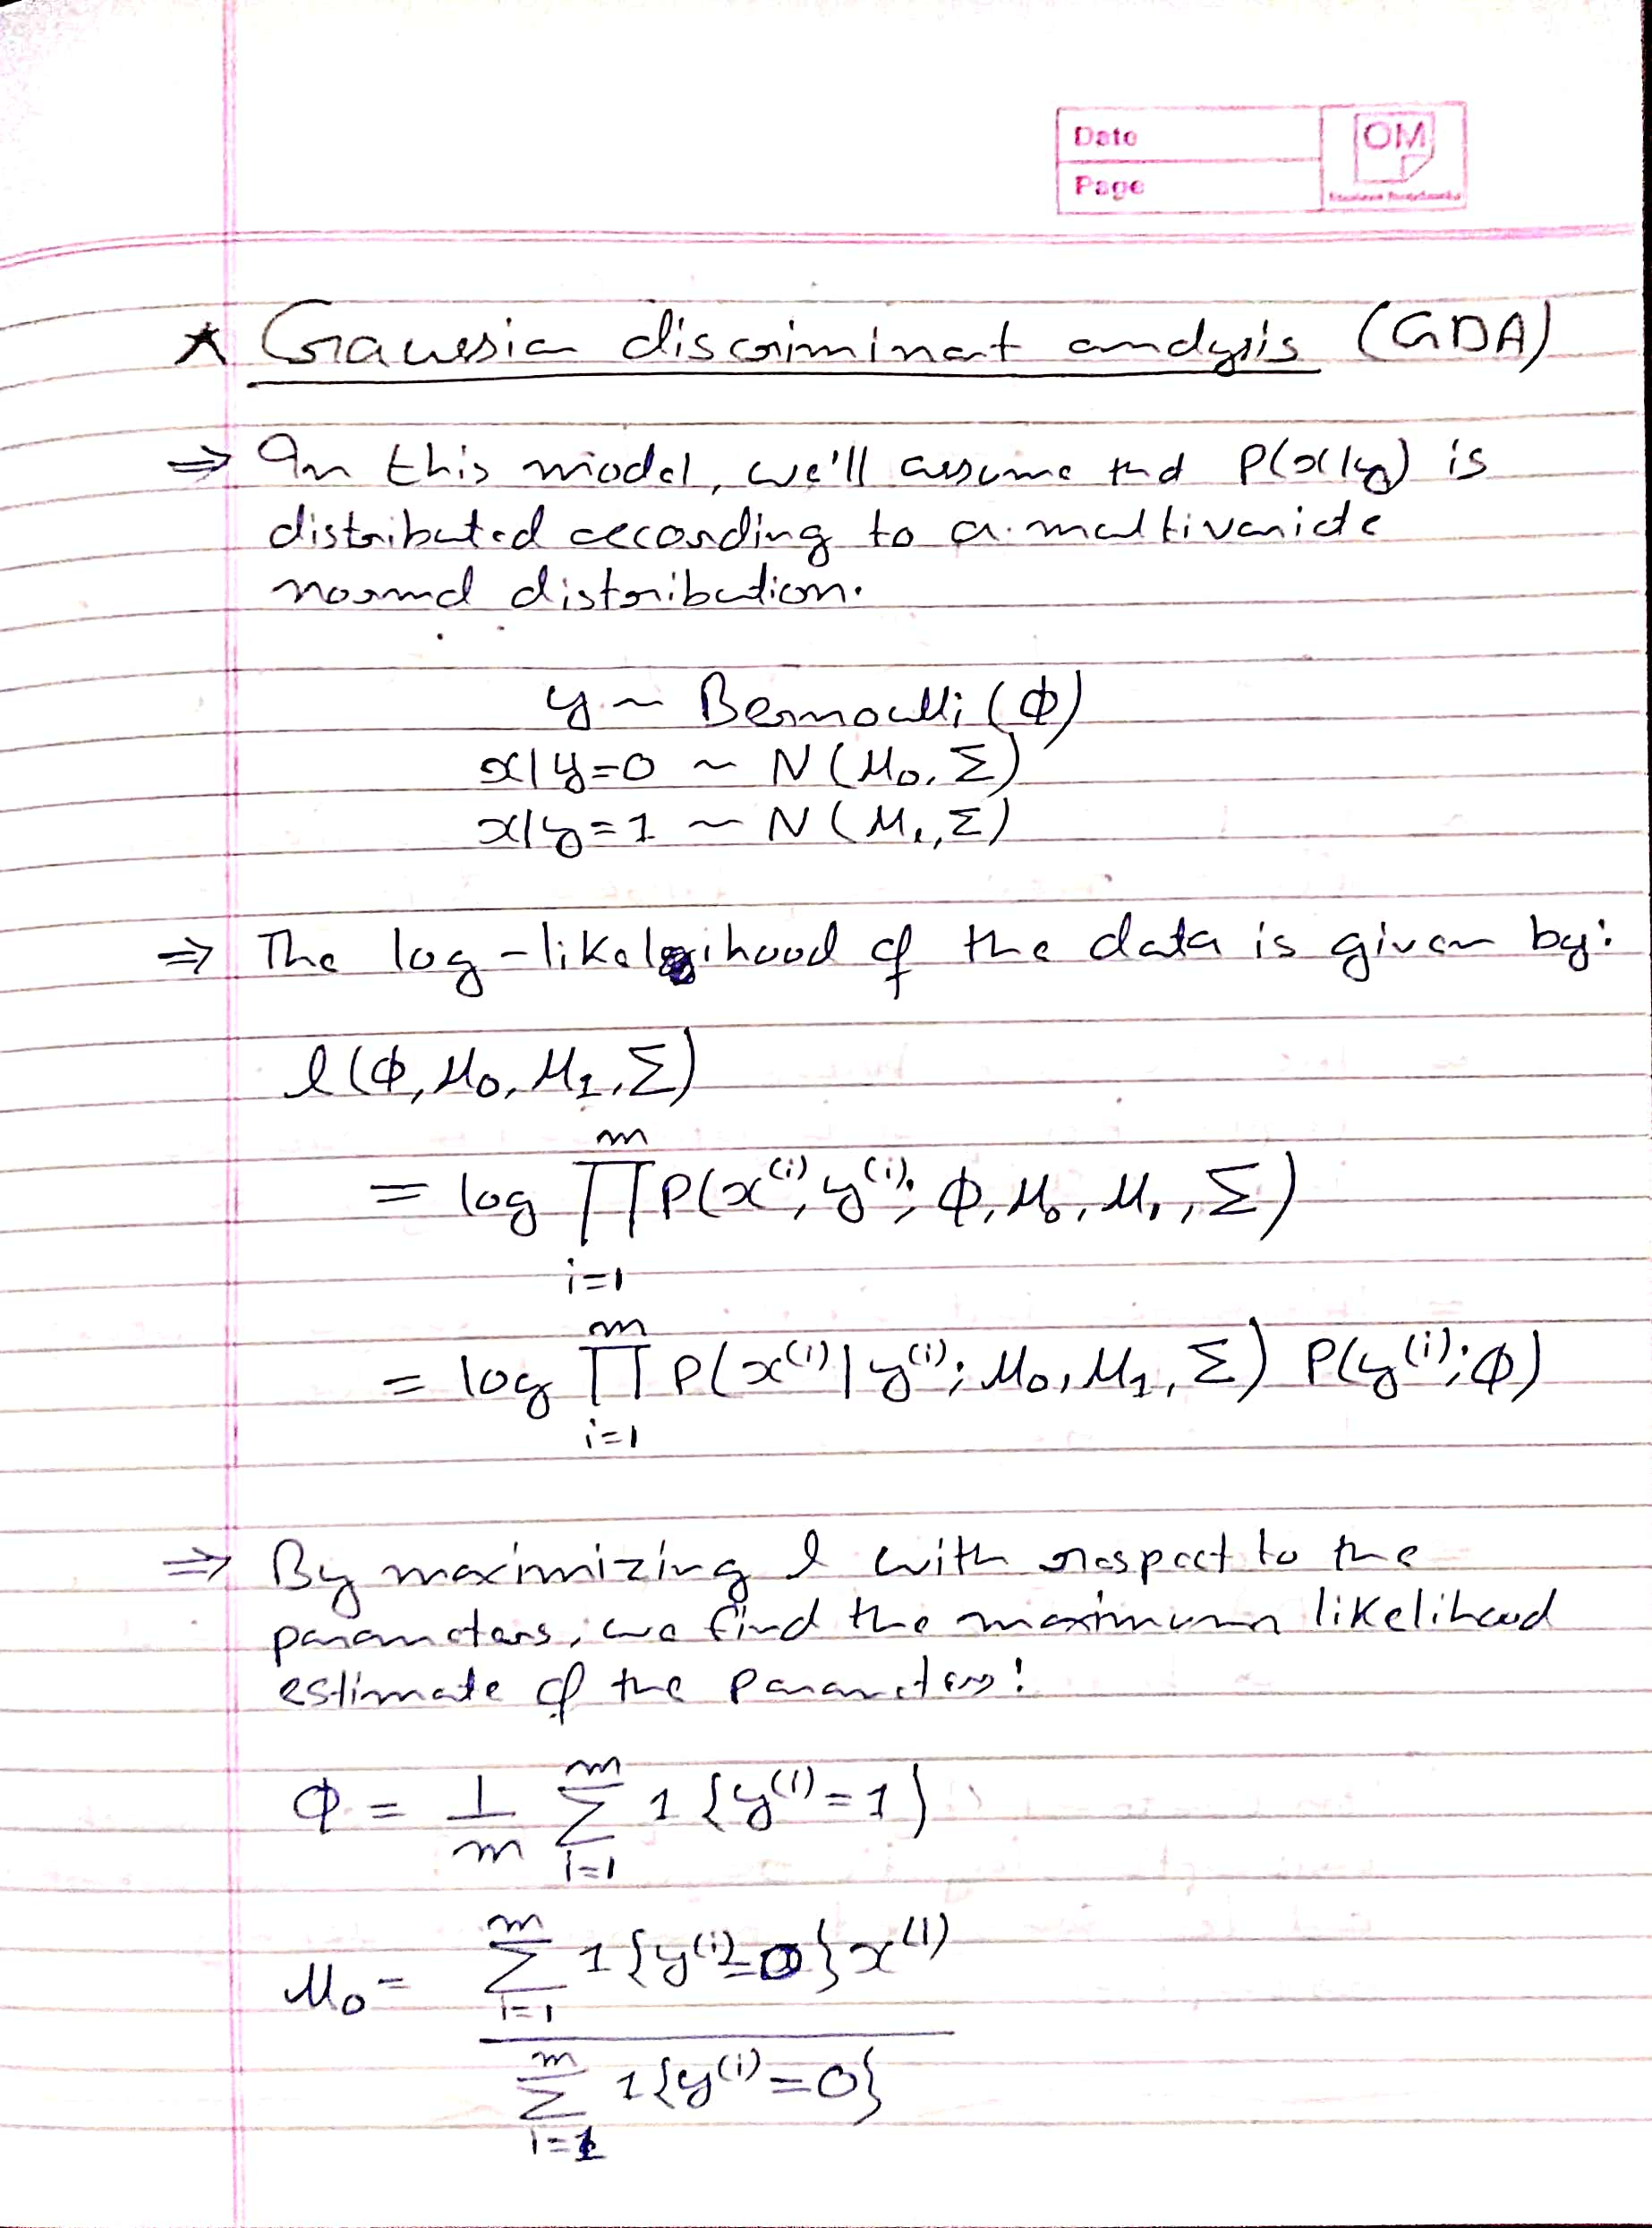 Date
OM
Page
★ Gaussian discriminant analysis (GDA)
⇒ In this model, we'll assume that P(x|y) is
distributed according to a multivariate
normal distribution.
y ~ Bernoulli(ϕ)
x|y=0 ~ N(μ₀, Σ)
x|y=1 ~ N(μ₁, Σ)
⇒ The log-likelihood of the data is given by:
l(ϕ, μ₀, μ₁, Σ)
m
= log ∏ P(x⁽ⁱ⁾, y⁽ⁱ⁾; ϕ, μ₀, μ₁, Σ)
i=1
m
= log ∏ P(x⁽ⁱ⁾|y⁽ⁱ⁾; μ₀, μ₁, Σ) P(y⁽ⁱ⁾; ϕ)
i=1
⇒ By maximizing l with respect to the
parameters, we find the maximum likelihood
estimate of the parameters:
m
ϕ = 1/m Σ 1{y⁽ⁱ⁾=1}
i=1
m
μ₀ = Σ 1{y⁽ⁱ⁾=0}x⁽ⁱ⁾
i=1
m
Σ 1{y⁽ⁱ⁾=0}
i=1